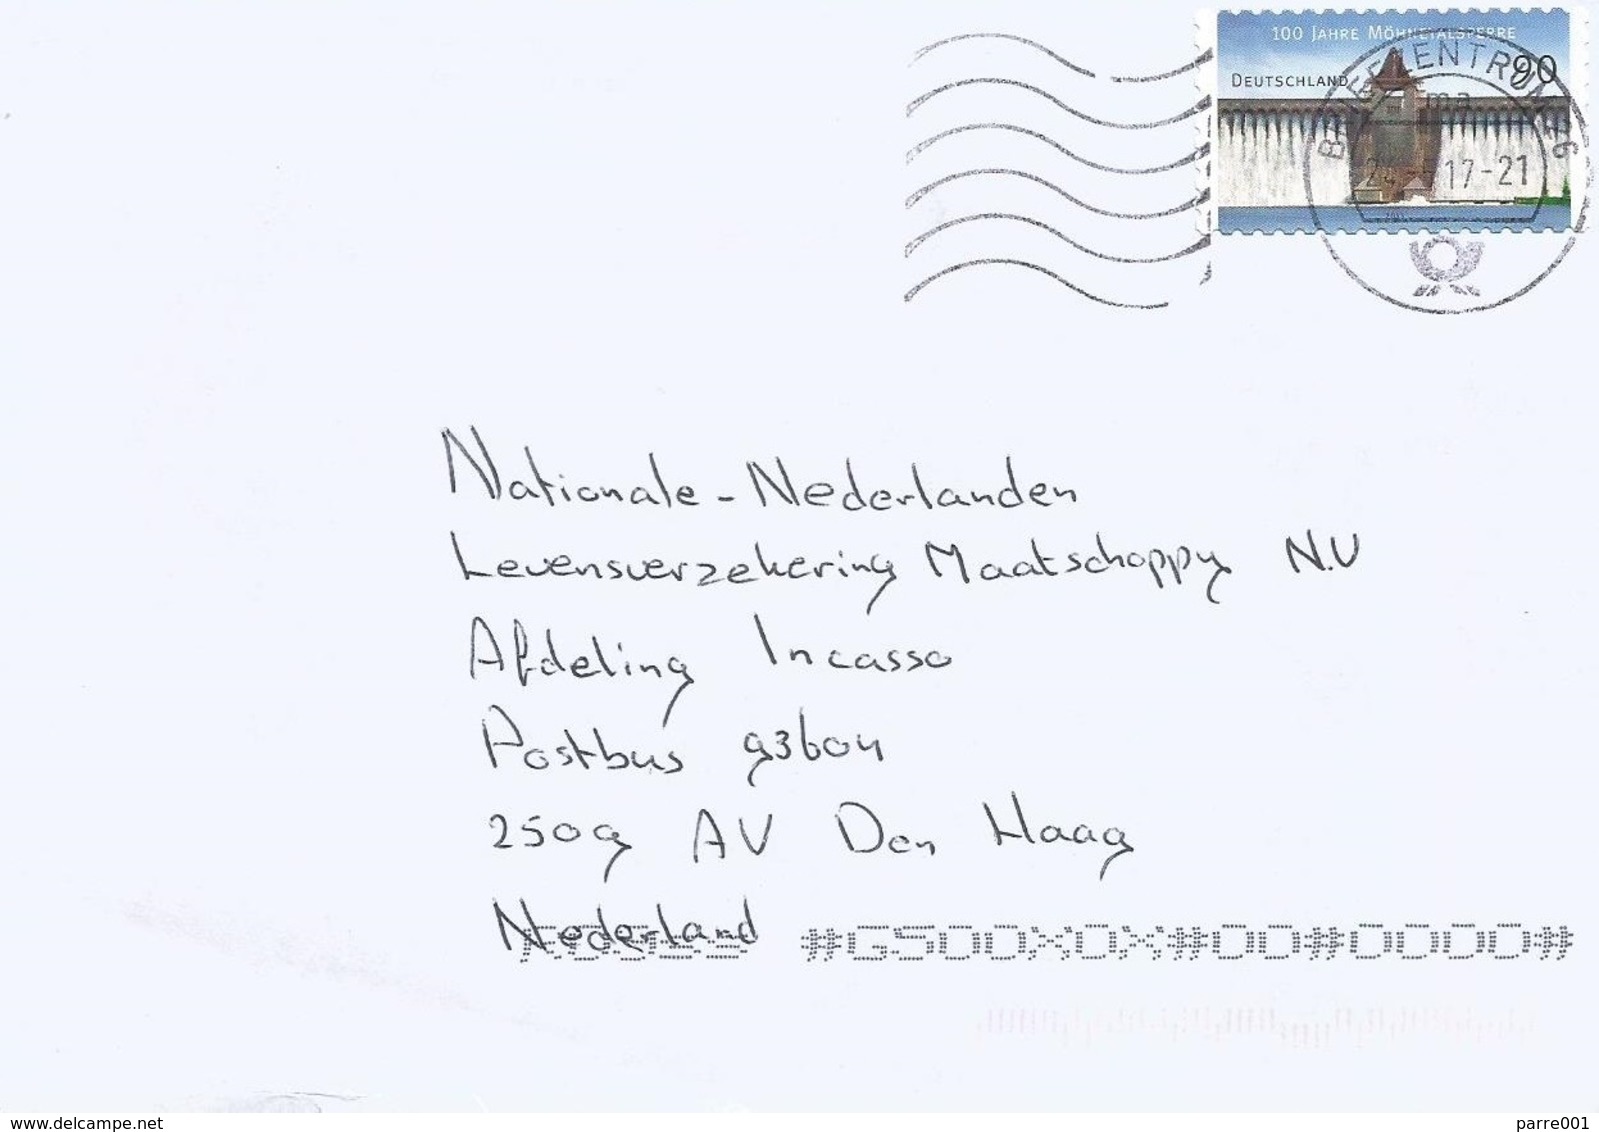 100 JAHRE MÖHNETALSPERRE
DEUTSCHLAND
90
BRIEFZENTRUM
ma
17-21
Nationale-Nederlanden
Levensverzekering Maatschappy N.V
Afdeling Incasso
Postbus 93604
2509 AV Den Haag
Nederland
#G500X0X#00#0000#
delcampe.net
parre001